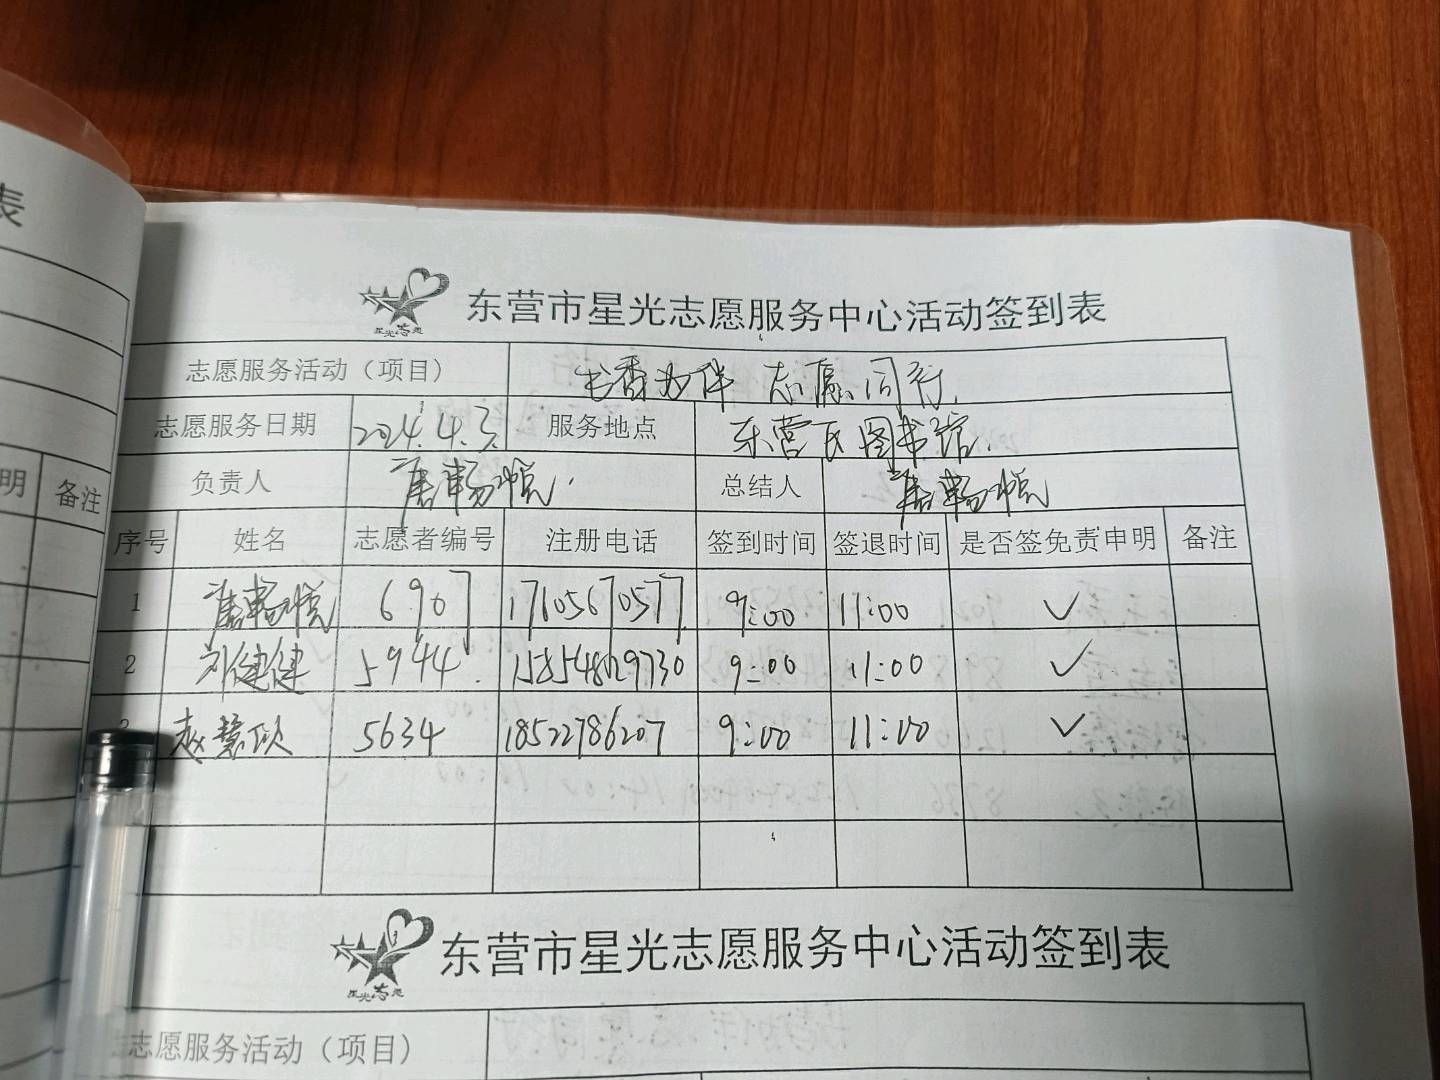 表
明 备注
星光志愿
东营市星光志愿服务中心活动签到表
志愿服务活动（项目） 书香为伴 志愿同行
志愿服务日期 2024.4.3. 服务地点 东营区图书馆.
负责人 唐畅悦. 总结人 唐畅悦
序号 姓名 志愿者编号 注册电话 签到时间 签退时间 是否签免责申明 备注
1 唐畅悦 6907 17605670577 9:00 11:00 ✓
2 刘健健 5944. 15854829730 9:00 11:00 ✓
赵慧欣 5634 18522786207 9:00 11:00 ✓
星光志愿
东营市星光志愿服务中心活动签到表
志愿服务活动（项目）